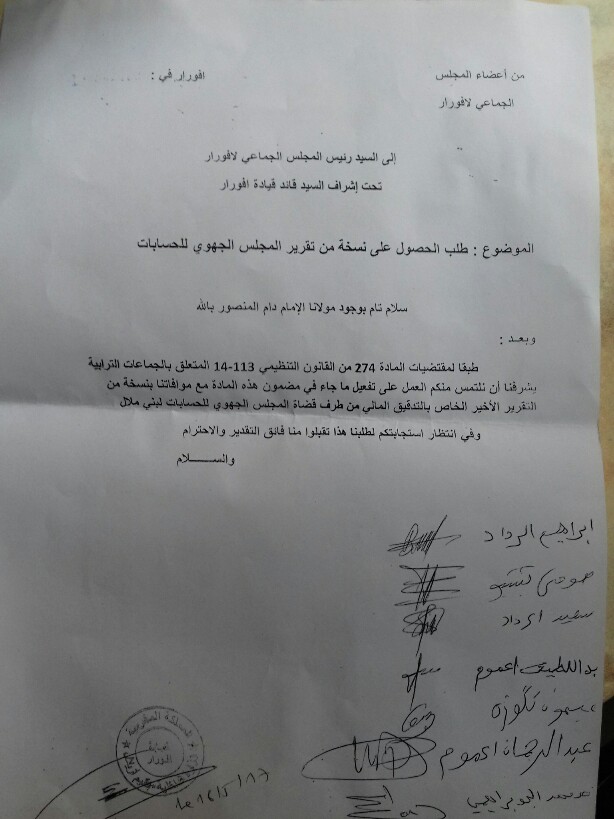 من أعضاء المجلس
افورار في :
الجماعي لافورار
إلى السيد رئيس المجلس الجماعي لافورار
تحت إشراف السيد قائد قيادة افورار
الموضوع : طلب الحصول على نسخة من تقرير المجلس الجهوي للحسابات
سلام تام بوجود مولانا الإمام دام المنصور بالله
وبعد :
طبقا لمقتضيات المادة 274 من القانون التنظيمي 113-14 المتعلق بالجماعات الترابية
يشرفنا أن نلتمس منكم العمل على تفعيل ما جاء في مضمون هذه المادة مع موافاتنا بنسخة من
التقرير الأخير الخاص بالتدقيق المالي من طرف قضاة المجلس الجهوي للحسابات لبني ملال
وفي انتظار استجابتكم لطلبنا هذا تقبلوا منا فائق التقدير والاحترام
والســـــلام
ابراهيم الرداد
سعيد الرداد
اعموم
عبد الرحمان اعموم
المملكة المغربية
le 16/5/17